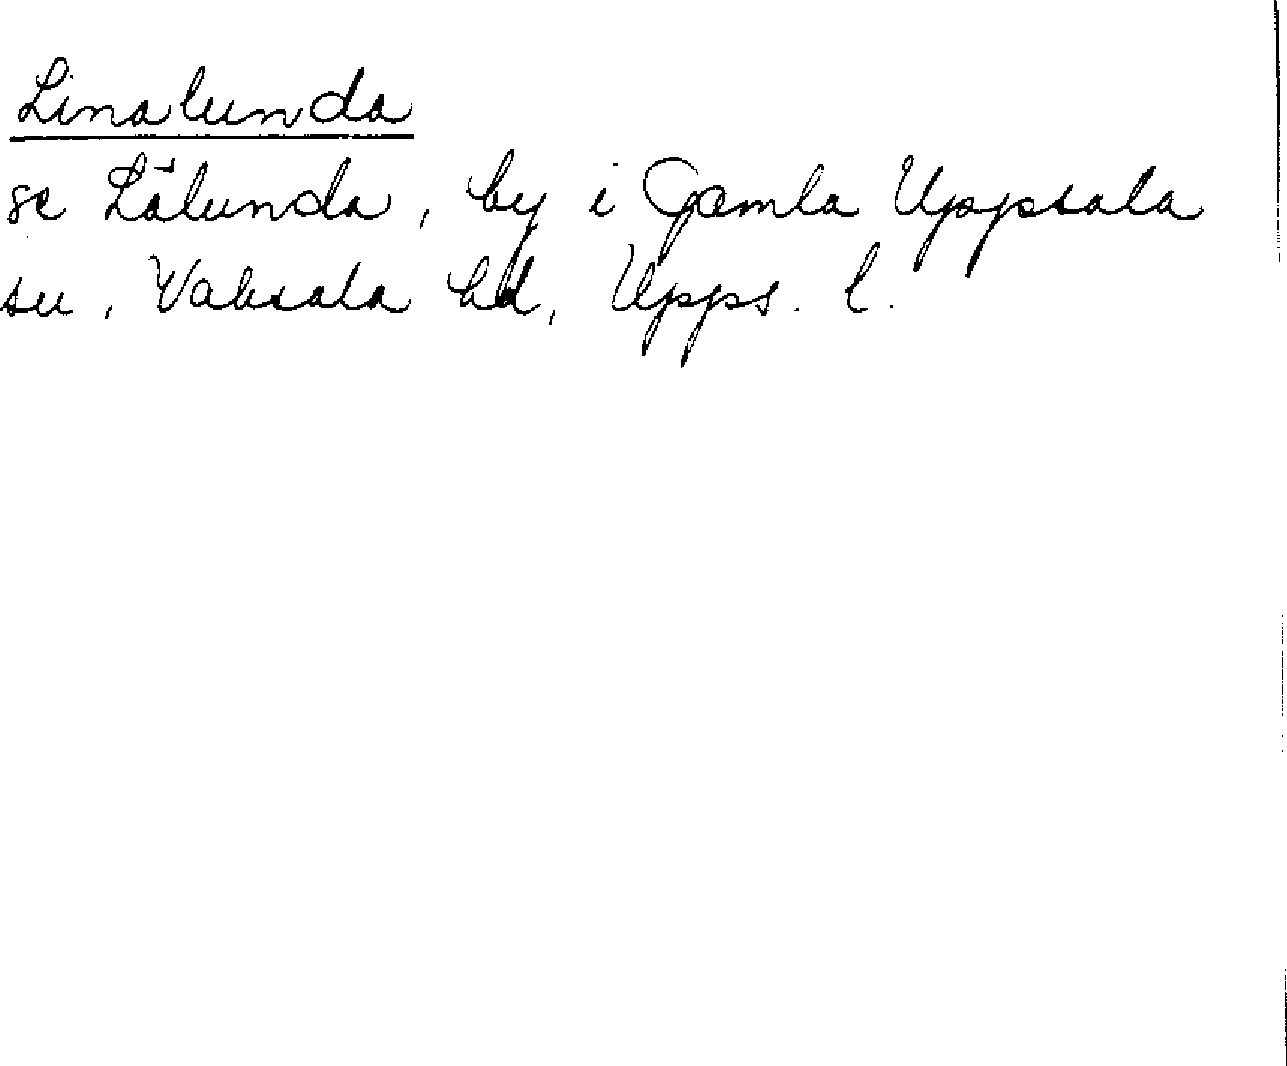 Linalunda
se Lälunda, by i Gamla Uppsala
sn, Vaksala hd, Upps. l.